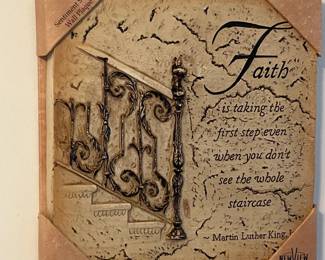 Sentiment
Wall Plaque
Faith
is taking the
first step even
when you don't
see the whole
staircase
~ Martin Luther King, J
NEW VIEW